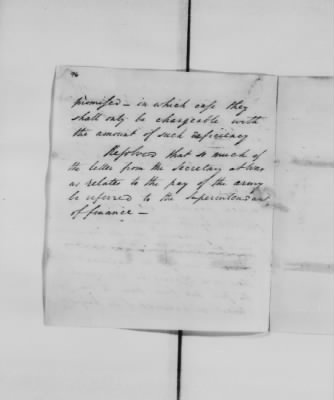 96
promised — in which case they
shall only be chargeable with
the amount of such deficiency
Resolved that so much of
the letter from the Secretary at War
as relates to the pay of the army
be referred to the Superintendant
of finance —